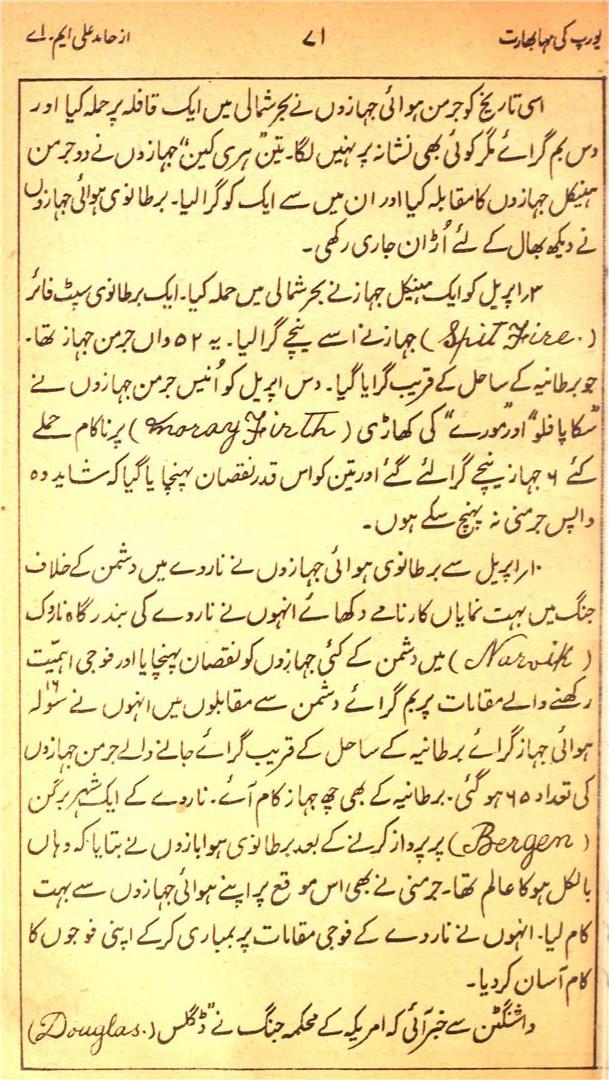 یورپ کی مہابھارت ۷۱ از حامد علی ایم۔ اے
اسی تاریخ کو جرمن ہوائی جہازوں نے بحر شمالی میں ایک قافلہ پر حملہ کیا اور
دس بم گرائے مگر کوئی بھی نشانہ پر نہیں لگا۔ تین "ہری کین" جہازوں نے دو جرمن
ہینکل جہازوں کا مقابلہ کیا اور ان میں سے ایک کو گرا لیا۔ برطانوی ہوائی جہازوں
نے دیکھ بھال کے لئے اُڑان جاری رکھی۔
۳؍ اپریل کو ایک ہینکل جہاز نے بحر شمالی میں حملہ کیا۔ ایک برطانوی سپٹ فائر
(Spit Fire.) جہاز نے اسے نیچے گرا لیا۔ یہ ۵۲ واں جرمن جہاز تھا۔
جو برطانیہ کے ساحل کے قریب گرایا گیا۔ دس اپریل کو اُنیس جرمن جہازوں نے
"سکاپا فلو" اور "مورے" کی کھاڑی (Moray Firth) پر ناکام حملے
کئے ۶ جہاز نیچے گرا لئے گئے اور تین کو اس قدر نقصان پہنچایا گیا کہ شاید وہ
واپس جرمنی نہ پہنچ سکے ہوں۔
۱۰؍ اپریل سے برطانوی ہوائی جہازوں نے ناروے میں دشمن کے خلاف
جنگ میں بہت نمایاں کارنامے دکھائے انہوں نے ناروے کی بندرگاہ ناروک
(Narvik) میں دشمن کے کئی جہازوں کو نقصان پہنچایا اور فوجی اہمیّت
رکھنے والے مقامات پر بم گرائے دشمن سے مقابلوں میں انہوں نے سولہ ۱۶
ہوائی جہاز گرائے برطانیہ کے ساحل کے قریب گرائے جانے والے جرمن جہازوں
کی تعداد ۶۵ ہو گئی۔ برطانیہ کے بھی چھ جہاز کام آئے۔ ناروے کے ایک شہر برگن
(Bergen) پر پرواز کرنے کے بعد برطانوی ہوا بازوں نے بتایا کہ وہاں
بالکل ہو کا عالم تھا۔ جرمنی نے بھی اس موقع پر اپنے ہوائی جہازوں سے بہت
کام لیا۔ انہوں نے ناروے کے فوجی مقامات پر بمباری کر کے اپنی فوجوں کا
کام آسان کر دیا۔
واشنگٹن سے خبر آئی کہ امریکہ کے محکمہ جنگ نے "ڈگلس (Douglas.)